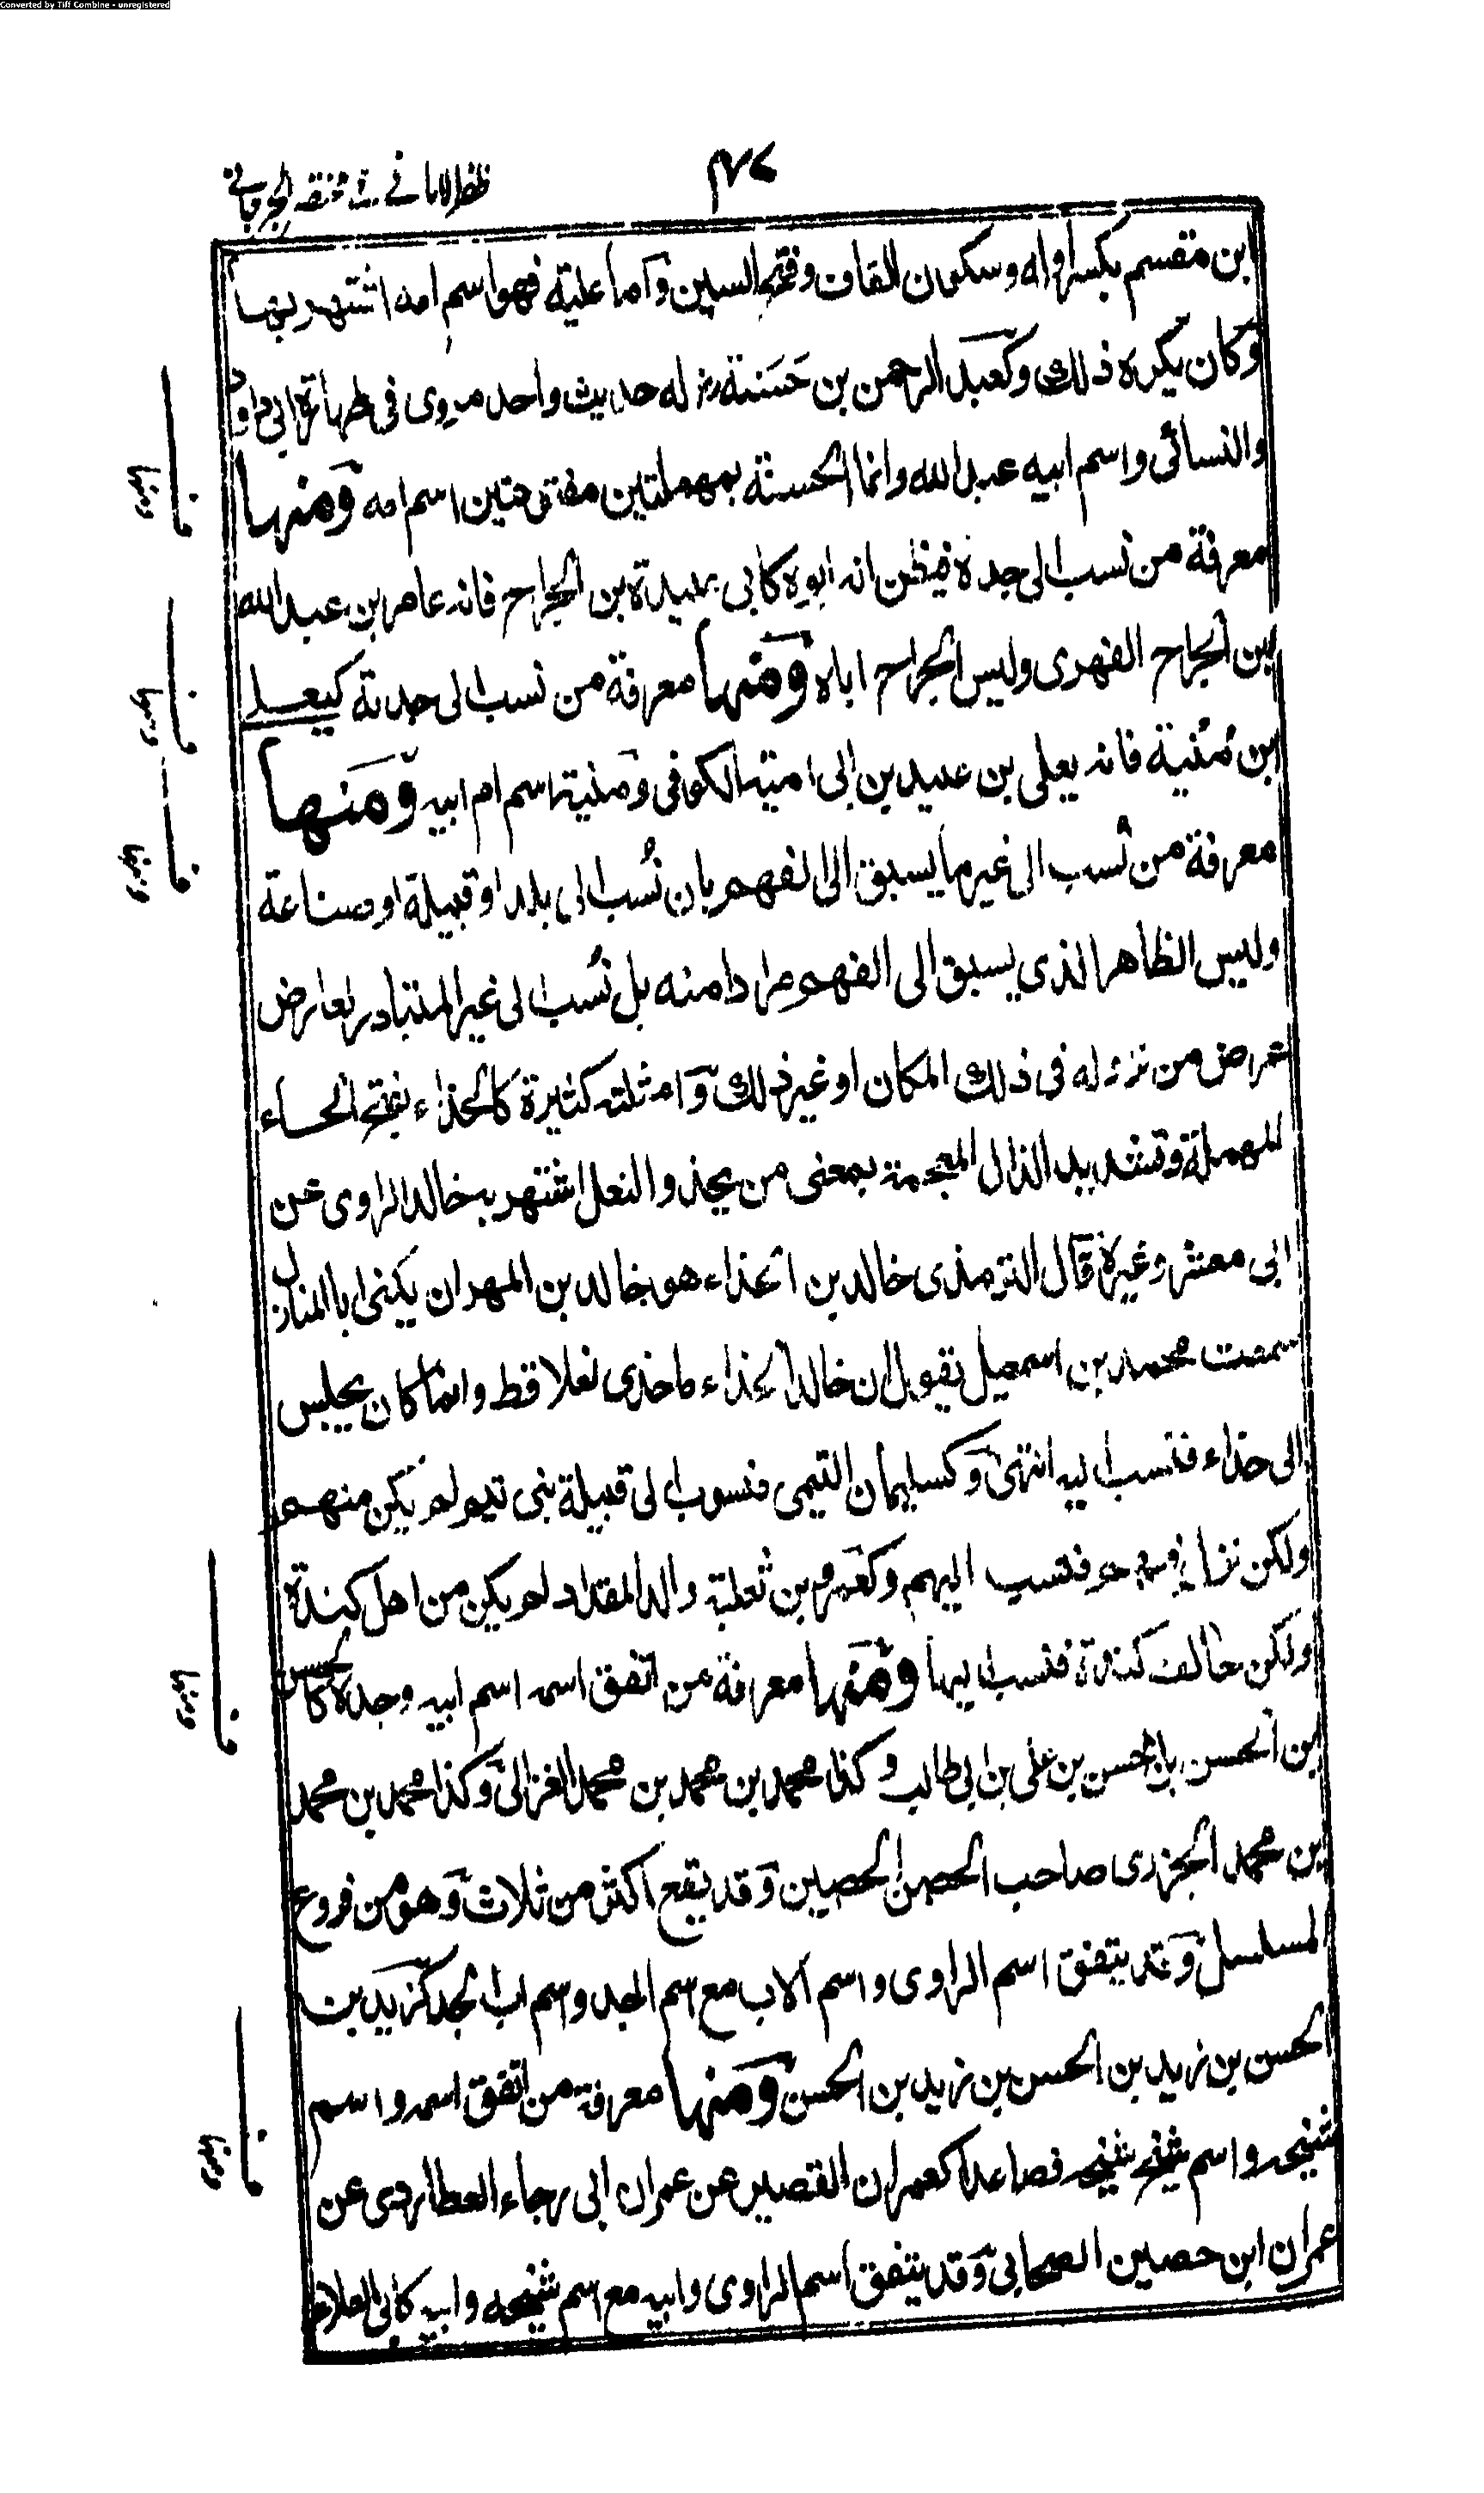 Converted by Tiff Combine - unregistered
ظفر الامانی فی مختصر الجرجانی
ابن مقسم بكسر اوله وسكون القاف وفتح السين وَاما علية فهو اسم امه اشتهر بها
وَكان يكره ذلك وَكعبد الرحمن بن حَسَنة له حديث واحد مروى فى طهارة ابى داود
والنسائى واسم ابيه عبد الله وانما الحسنة بمهملتين مفتوحتين اسم امه وَمنها
معرفة من نسب الى جده فيظن انه ابوه كابى عبيدة بن الجراح فانه عامر بن عبد الله
بن الجراح الفهرى وليس الجراح اباه وَمنها معرفة من نسب الى جدته كيعلى
ابن مُنية فانه يعلى بن عبيد بن ابى امية الكوفى وَمنية اسم ام ابيه وَمنها
معرفة من نُسب الى غير ما يسبق الى الفهم بان نُسب الى بلد او قبيلة او صناعة
وليس الظاهر الذى يسبق الى الفهم مرادا منه بل نُسب الى غير المتبادر لعارض
عرض من نزوله فى ذلك المكان او غير ذلك وَامثلته كثيرة كالحذاء بفتح الحاء
المهملة وتشديد الذال المعجمة بمعنى من يحذو النعل اشتهر به خالد الراوى عن
ابى معشر وغيره قَال الترمذى خالد بن الحذاء هو خالد بن المهران يكنى ابا المنازل
سمعت محمد بن اسمعيل يقول ان خالد الحذاء ما حذى نعلا قط وانما كان يجلس
الى حذاء فنسب اليه انتهى وَكسليمان التيمى منسوب الى قبيلة بنى تيم ولم يكن منهم
ولكن نزل فيهم فنسب اليهم وكعَمرو بن ثعلبة والد المقداد لم يكن من اهل كندة
ولكن حالف كندة فنسب اليها وَمنها معرفة من اتفق اسمه اسم ابيه وجده كالحسن
بن الحسن بن الحسن بن على بن ابى طالب وكذا محمد بن محمد بن محمد الغزالى وَكذا محمد بن محمد
بن محمد الجزرى صاحب الحصن الحصين وَقد يقع اكثر من ثلاث وَهو من فروع
المسلسل وَقد يتفق اسم الراوى واسم الاب مع اسم الجد واسم اب الجد كزيد بن
الحسن بن زيد بن الحسن بن زيد بن الحسن وَمنها معرفة من اتفق اسمه واسم
شيخه واسم شيخ شيخه فصاعدا كعمران القصير عن عمران ابى رجاء العطاردى عن
عمران ابن حصين الصحابى وَقد يتفق اسم الراوى وابيه مع اسم شيخه وابيه كابى العلاء